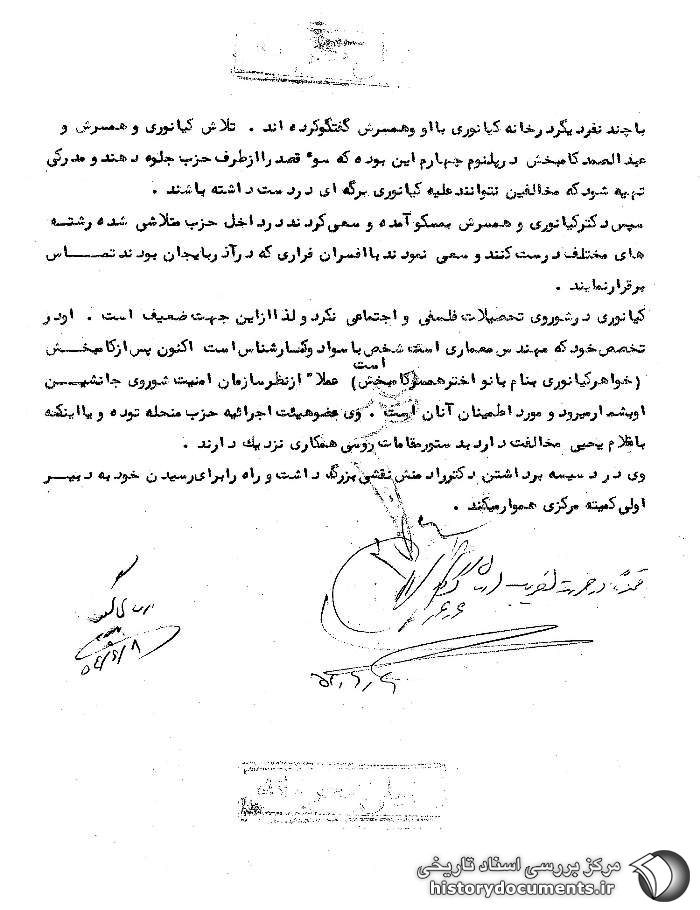 با چند نفر دیگر در خانه کیانوری با او و همسرش گفتگو کرده اند . تلاش کیانوری و همسرش و
عبدالصمد کامبخش در پلنوم چهارم این بوده که سوء قصد را از طرف حزب جلوه دهند و مدرکی
تهیه شود که مخالفین نتوانند علیه کیانوری برگه ای در دست داشته باشند .
سپس دکتر کیانوری و همسرش بمسکو آمده و سعی کردند در داخل حزب متلاشی شده رشته
های مختلف درست کنند و سعی نمودند با افسران فراری که در آذربایجان بودند تماس
برقرار نمایند .
کیانوری در شوروی تحصیلات فلسفی و اجتماعی نکرد و لذا از این جهت ضعیف است . او در
تخصص خود که مهندس معماری است شخص با سواد و کارشناس است اکنون پس از کامبخش
است
(خواهر کیانوری بنام بانو اختر همسر کامبخش) عملا" از نظر سازمان امنیت شوروی جانشین
او بشمار میرود و مورد اطمینان آنان است . وی عضو هیئت اجرائیه حزب منحله توده و با اینکه
با غلام یحیی مخالفت دارد بدستور مقامات روسی همکاری نزدیک دارند .
وی در دسیسه برداشتن دکتر رادمنش نقشی بزرگ داشت و راه را برای رسیدن خود به دبیر
اولی کمیته مرکزی هموار میکند .
مرکز بررسی اسناد تاریخی
historydocuments.ir